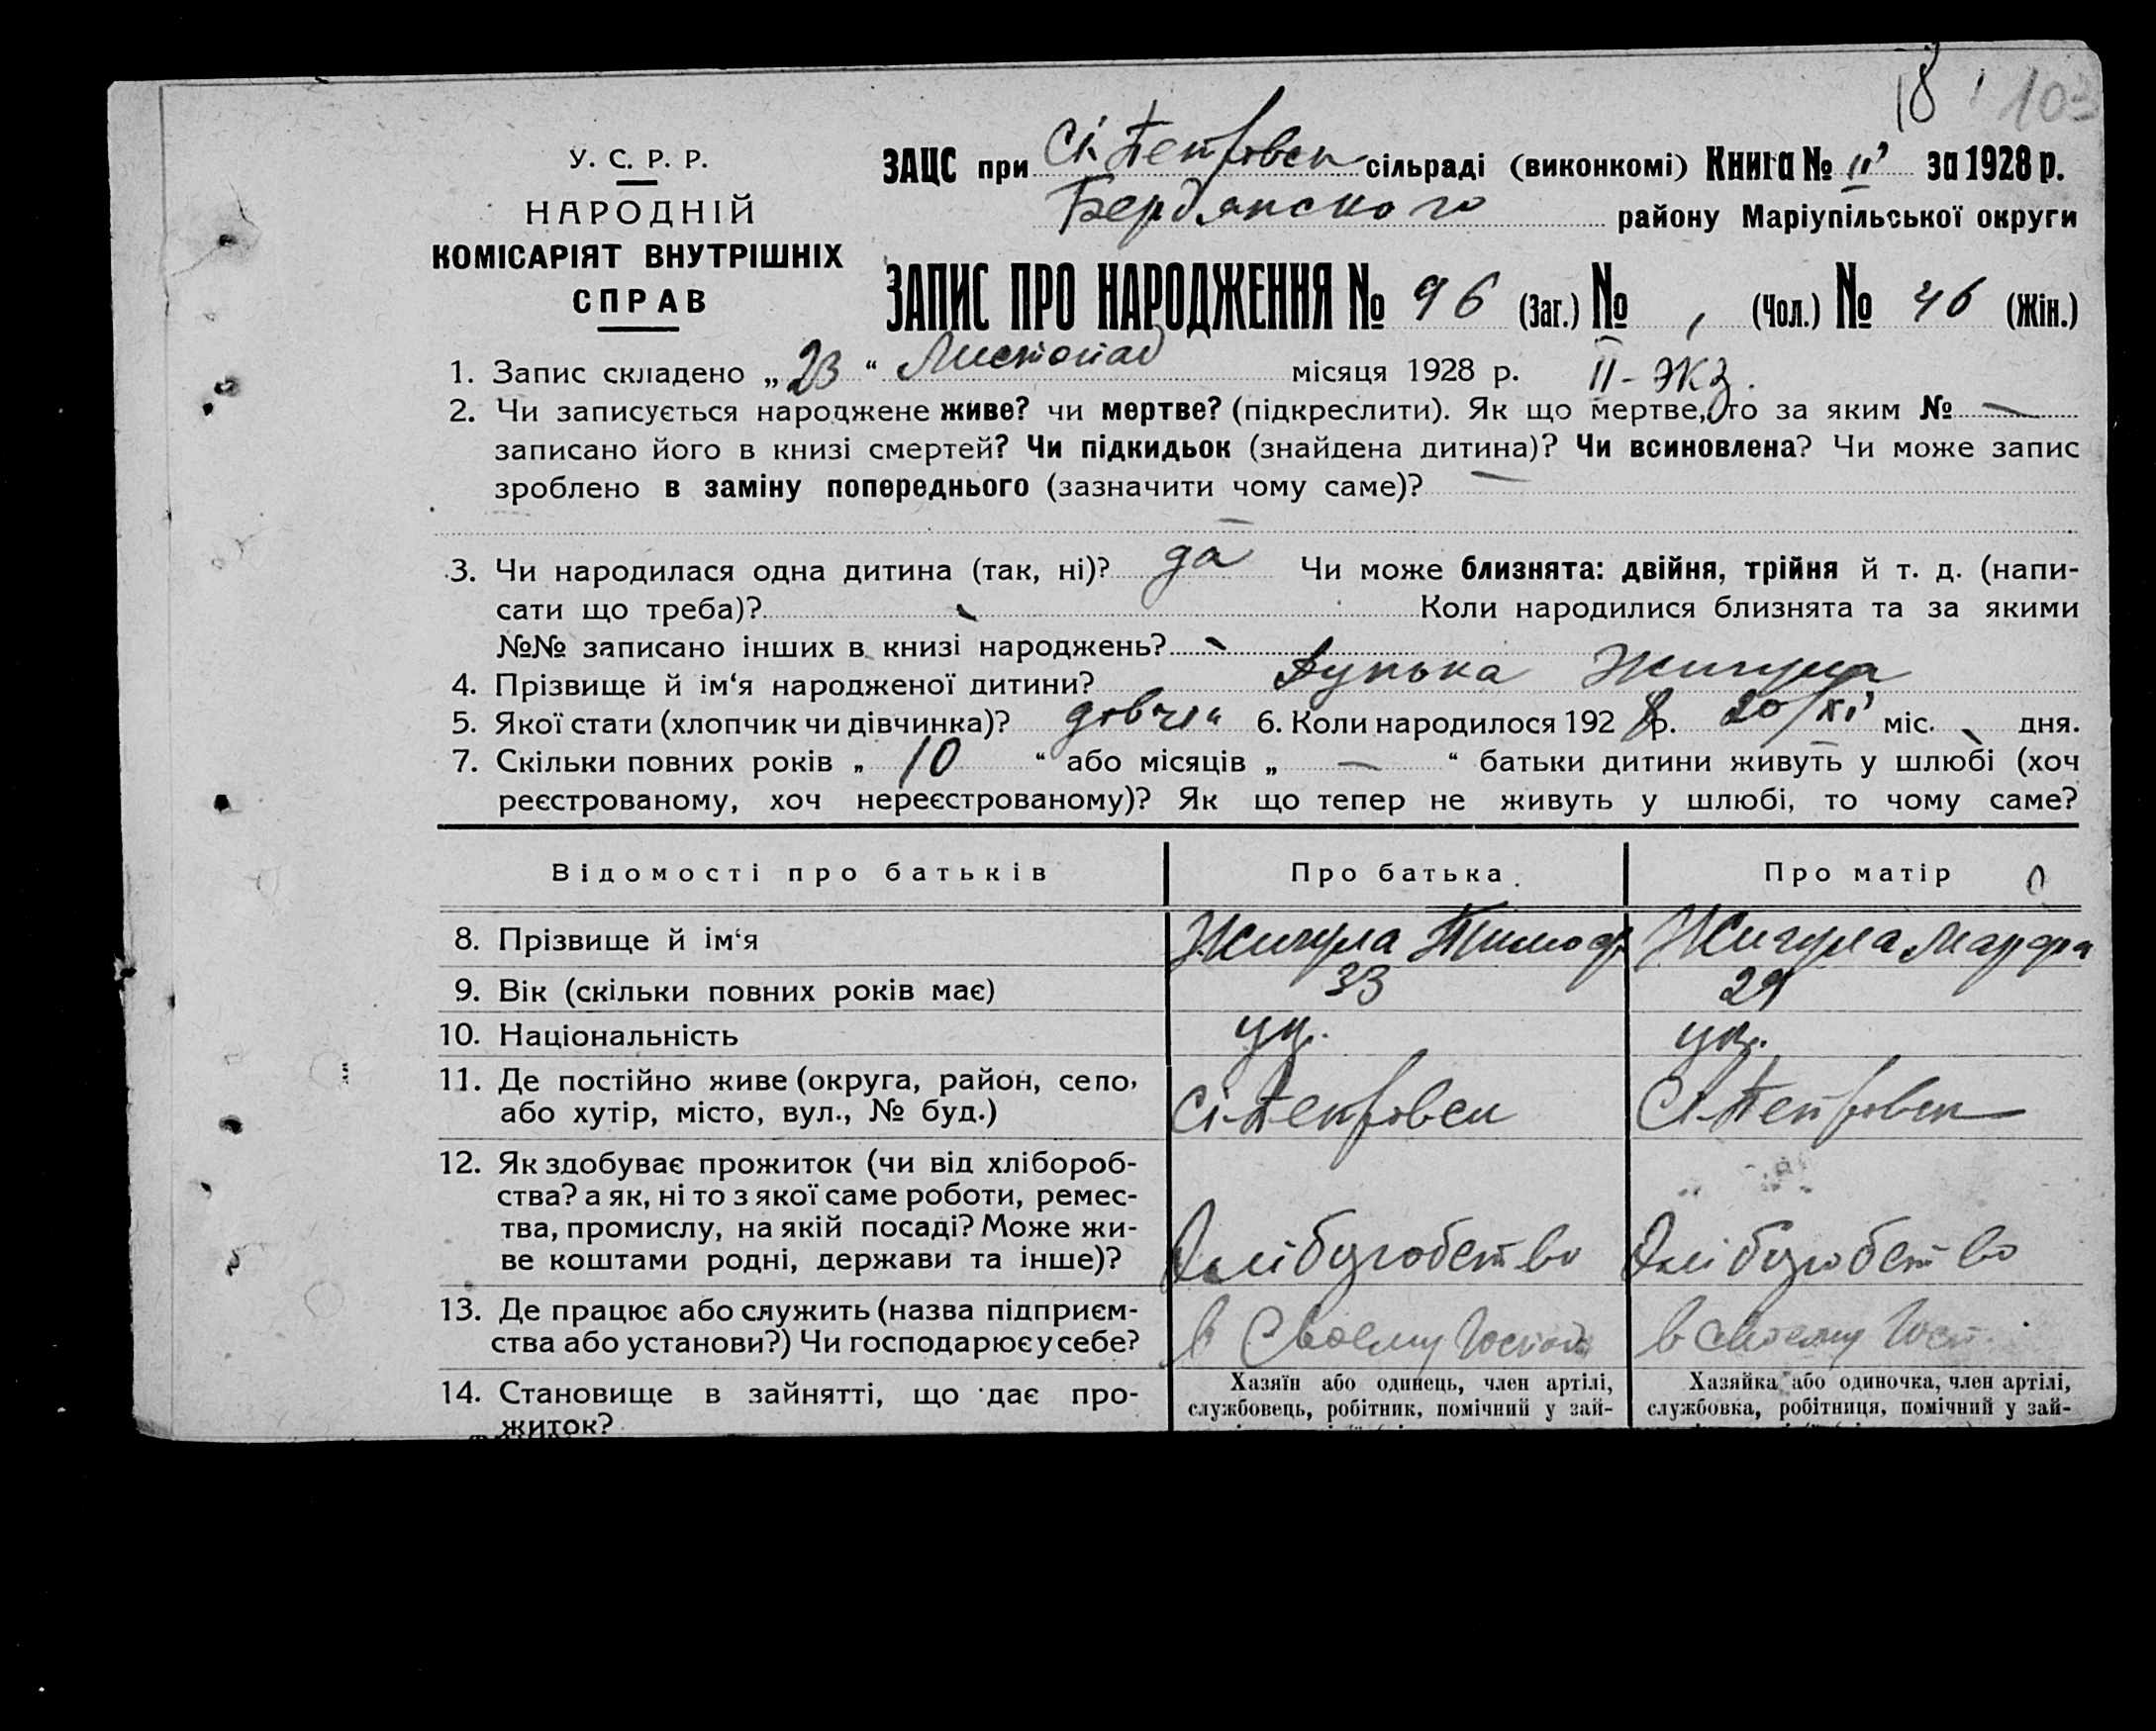 18 103
У. С. Р. Р.
НАРОДНІЙ
КОМІСАРІЯТ ВНУТРІШНІХ
СПРАВ
ЗАЦС при Сі Петровск сільраді (виконкомі) Книга № II за 1928 р.
Бердянского району Маріупільської округи
ЗАПИС ПРО НАРОДЖЕННЯ № 96 (Заг.) № (Чол.) № 46 (Жін.)
1. Запис складено „ 23 “ Листопад місяця 1928 р. II - экз.
2. Чи записується народжене живе? чи мертве? (підкреслити). Як що мертве, то за яким № —
записано його в книзі смертей? Чи підкидьок (знайдена дитина)? Чи всиновлена? Чи може запис
зроблено в заміну попереднього (зазначити чому саме)? —
3. Чи народилася одна дитина (так, ні)? да Чи може близнята: двійня, трійня й т. д. (напи-
сати що треба)? Коли народилися близнята та за якими
№№ записано інших в книзі народжень?
4. Прізвище й ім‘я народженої дитини? Жигула
5. Якої стати (хлопчик чи дівчинка)? 6. Коли народилося 1928 р. 20/XI міс. дня.
7. Скільки повних років „ 10 “ або місяців „ — “ батьки дитини живуть у шлюбі (хоч
реєстрованому, хоч нереєстрованому)? Як що тепер не живуть у шлюбі, то чому саме?
Відомості про батьків Про батька Про матір
8. Прізвище й ім‘я Жигула Тимоф Жигула Марфа
9. Вік (скільки повних років має) 33 29
10. Національність ук. ук.
11. Де постійно живе (округа, район, село,
або хутір, місто, вул., № буд.) Сі-Петровск Сі-Петровск
12. Як здобуває прожиток (чи від хлібороб-
ства? а як, ні то з якої саме роботи, ремес-
тва, промислу, на якій посаді? Може жи-
ве коштами родні, держави та інше)?
13. Де працює або служить (назва підприєм-
ства або установи?) Чи господарює у себе? в Своему Господ в своему Госп.
14. Становище в зайнятті, що дає про-
житок?
Хазяїн або одинець, член артілі,
службовець, робітник, помічний у зай-
Хазяйка або одиночка, член артілі,
службовка, робітниця, помічний у зай-